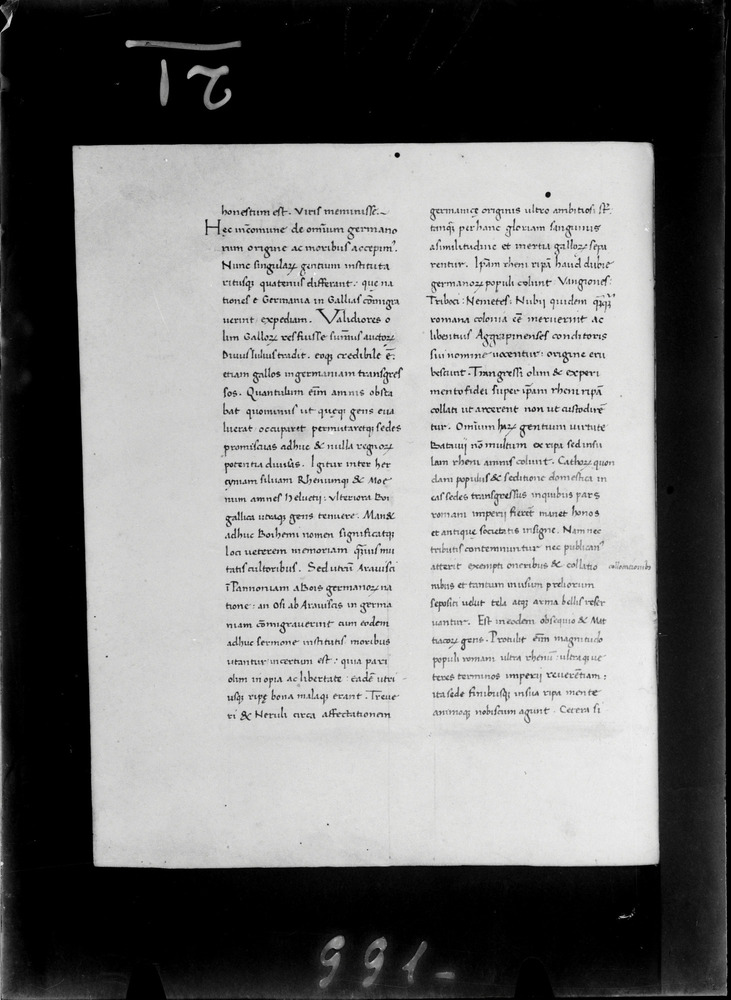 honestum est. Viris meminisse.
Hęc incomune de omnium germano
rum origine ac moribus accepim᷒.
Nunc singularꝝ gentium instituta
ritusqꝫ quatenus differant: que na
tiones e Germania in Gallias cōmigra
uerint expediam. Validiores o
lim Gallorꝝ res fuisse summus auctorꝝ
Diuus Iulius tradit. eoqꝫ credibile ē.
etiam gallos ingermaniam transgres
sos. Quantulum eīm amnis obsta
bat quominus ut quęqꝫ gens eua
luerat occuparet permutaretqꝫ sedes
promiscuas adhuc & nulla regnorꝝ
potentia diuisas. Igitur inter her
cyniam siluam Rhenumqꝫ & Moe
num amnes helueti: ulteriora Boi
gallica utraqꝫ gens tenuere. Man&
adhuc Boihemi nomen significatqꝫ
loci ueterem memoriam quīuis mu
tatis cultoribus. Sed utrū Arauisci
ī Pannoniam a Bois germanorꝝ na
tione: an Osi ab Arauiscis in germa
niam cōmigrauerint cum eodem
adhuc sermone institutis moribus
utantur incertum est: quia pari
olim inopia ac libertate: eadē utri
usqꝫ ripę bona malaqꝫ erant. Treue
ri & Neruli circa affectationem
germanicę originis ultro ambitiosi st̄:
tanqꝫ per hanc gloriam sanguinis
asimilitudine et inertia gallorꝝ sepa
rentur. Ipsam rheni ripā haud dubie
germanorꝝ populi colunt. Vangiones:
Triboci: Nemetes: Nubij quidem qꝫqꝫ
romana colonia eē meruerint ac
libentius Aggripinenses conditoris
sui nomine uocentur: origine eru
bescunt. Transgressi olim & experi
mento fidei super ipam rheni ripā
collati ut arcerent non ut custodirē
tur. Omnium harꝝ gentium uirtute
Batauij nō multum ex ripa sed insu
lam rheni amnis colunt. Cathorꝝ quon
dam populus & seditione domestica in
eas sedes transgressus inquibus pars
romani imperij fieret manet honos
et antique societatis insigne. Nam nec
tributis contemnuntur nec publican᷒
atterit exempti oneribus & collatio collationib᷒
nibus et tantum inusum preliorum
sepositi uelut tela atqꝫ arma bellis reser
uantur. Est in eodem obsequio & Mat
tiacorꝝ gens. Protulit eīm magnitudo
populi romani ultra rhenū: ultraqꝫ ue
teres terminos imperij reuerentiam:
ita sede finibusqꝫ insua ripa mente
animoqꝫ nobiscum agunt. Cetera si
991-